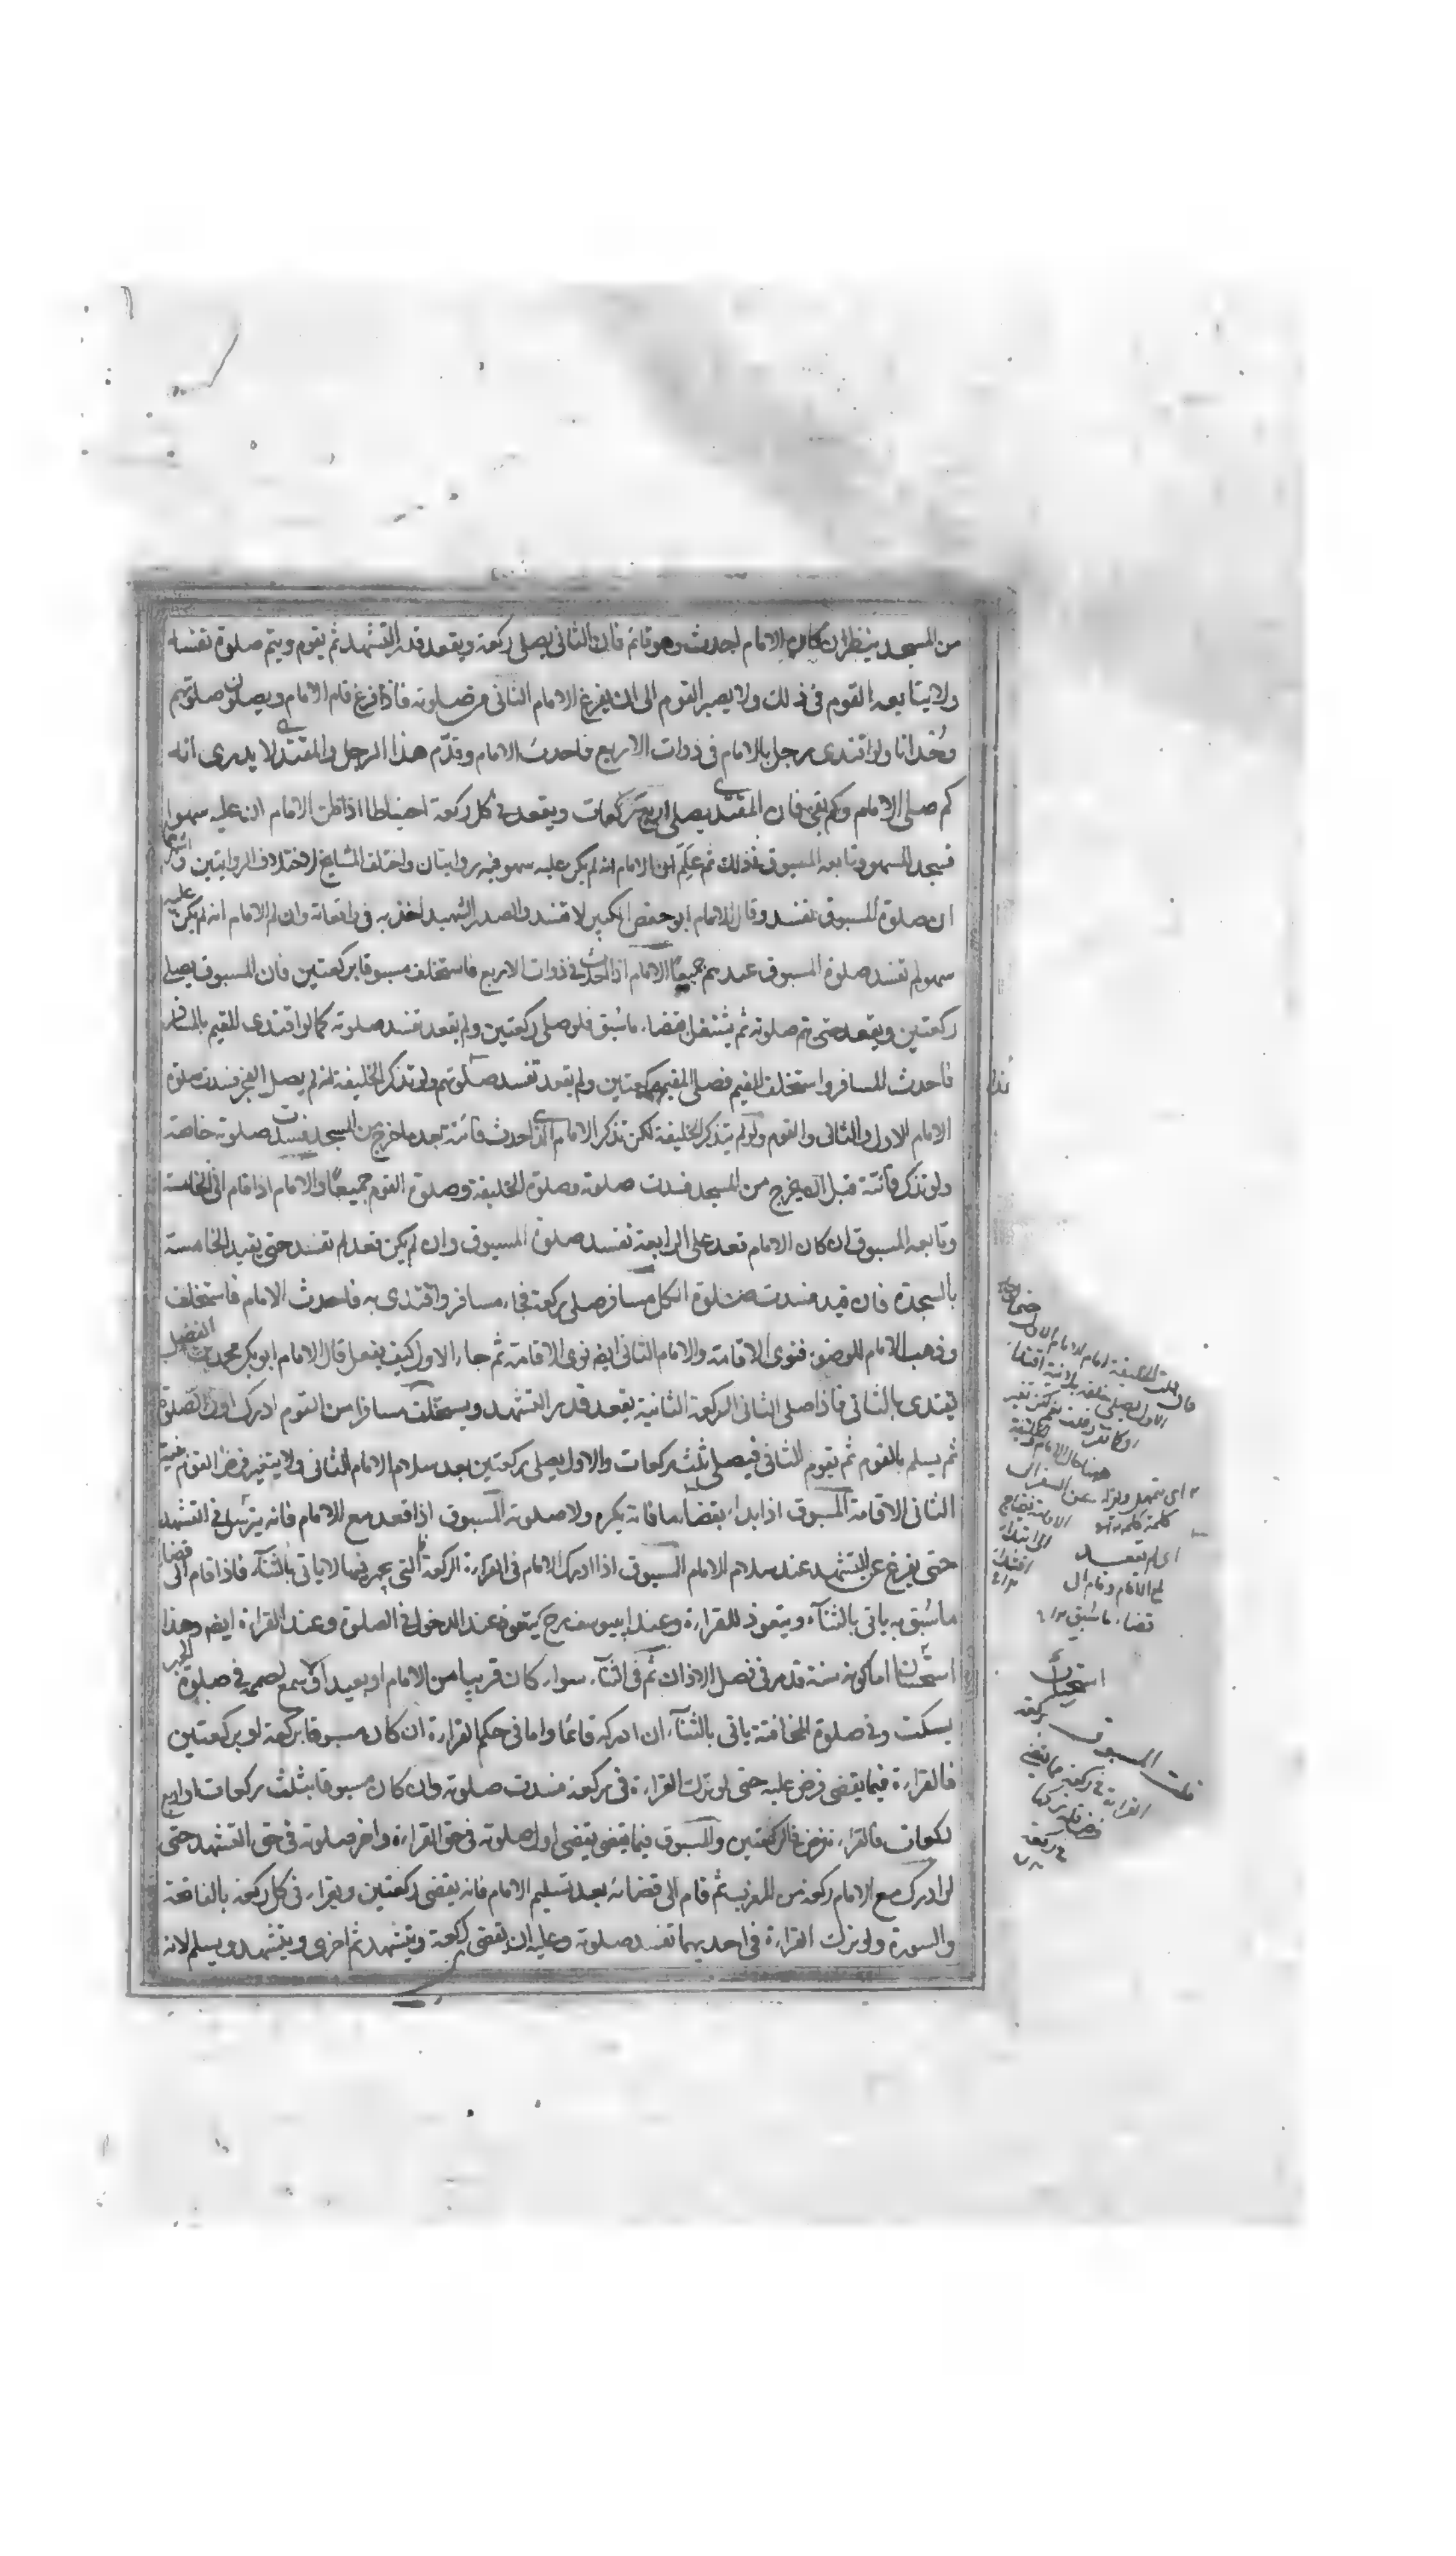 من المسجد ينظر ان كان الامام احدث وهو قائم فان الثانى يصلى ركعة ويقعد قدر التشهد ثم يقوم ويتم صلوة نفسه
ولا يتابعه القوم فى ذلك ولا يصير القوم الى ان يفرغ الامام الثانى من صلوته فاذا فرغ قام الامام ويصلون صلوتهم
وحدانا ولو اقتدى رجل بالامام فى ذوات الاربع فاحدث الامام وقدّم هذا الرجل والمقتدى لا يدرى انه
كم صلى الامام وكم بقى فان المقتدى يصلى اربع ركعات ويقعد فى كل ركعة احتياطا اذا ظن الامام ان عليه سهوا
فسجد للسهو وتابعه المسبوق فى ذلك ثم علم ان الامام انه لم يكن عليه سهو فيه روايتان واختلف المشايخ لاختلاف الروايتين واشهر
ان صلوة المسبوق تفسد وقال الامام ابو حفص الكبير لا تفسد والصدر الشهيد اخذ به فى واقعاته وان لم الامام انه لم يكن عليه
سهو لم تفسد صلوة المسبوق عندهم جميعا الامام اذا احدث فى ذوات الاربع فاستخلف مسبوقا بركعتين فان المسبوق يصلى
ركعتين ويقعد حتى تتم صلوته ثم يشتغل بقضاء ما سُبق فلو صلى ركعتين ولم يقعد تفسد صلوته كما لو اقتدى المقيم بالمسافر
فاحدث المسافر واستخلف المقيم فصلى المقيم ركعتين ولم يقعد تفسد صلوتهم ولو تذكر الخليفة انه لم يصل الفجر فسدت صلوة
الامام الاول والثانى والقوم ولو لم يتذكر الخليفة لكن تذكر الامام الذى احدث فائتة بعد ما خرج من المسجد فسدت صلوته خاصة
ولو تذكر فائتة قبل ان يخرج من المسجد فسدت صلوته وصلوة الخليفة وصلوة القوم جميعا والامام اذا قام الى الخامسة
وتابعه المسبوق ان كان الامام قعد على الرابعة تفسد صلوة المسبوق وان لم يكن قعد لم تفسد حتى يقيد الخامسة
بالسجدة فان قيد فسدت صلوة الكل مسافر صلى ركعة فجاء مسافر واقتدى به فاحدث الامام فاستخلف
وذهب الامام للوضوء فنوى الاقامة والامام الثانى ايضا نوى الاقامة ثم جاء الاول كيف يفعل قال الامام ابو بكر محمد بن الفضل
يقتدى بالثانى فاذا صلى الثانى الركعة الثانية يقعد قدر التشهد ويستخلف مسافرا من القوم ادرك اول الصلوة
ثم يسلم بالقوم ثم يقوم الثانى فيصلى ثلث ركعات والاول يصلى ركعتين بعد سلام الامام الثانى ولا يتغير فرض القوم بنية
الثانى الاقامة المسبوق اذا بدا بقضاء ما فاته يكره ولا صلوته المسبوق اذا قعد مع الامام فانه يترسل فى التشهد
حتى يفرغ عن التشهد عند سلام الامام المسبوق اذا ادرك الامام فى القراءة الركعة التى يجهر فيها لا ياتى بالثناء فاذا قام الى قضاء
ما سُبق به ياتى بالثناء ويتعوذ للقراءة وعند ابى يوسف رح يتعوذ عند الدخول فى الصلوة وعند القراءة ايضا وهذا
استحسانا اما كونه سنة قد مر فى فصل الاذان ثم فى الثناء سواء كان قريبا من الامام او بعيدا او لا يسمع لصممه فى صلوة الجهر
يسكت وفى صلوة المخافتة ياتى بالثناء ان ادركه قائما واما فى حكم القراءة ان كان مسبوقا بركعة او بركعتين
فالقراءة فيما يقضى فرض عليه حتى لو ترك القراءة فى ركعة فسدت صلوته وان كان مسبوقا بثلث ركعات او اربع
ركعات فالقراءة فرض فى الركعتين والمسبوق فيما يقضى يقضى اول صلوته فى حق القراءة واخر صلوته فى حق التشهد حتى
لو ادرك مع الامام ركعة من المغرب ثم قام الى قضائه بعد تسليم الامام فانه يقضى ركعتين ويقراء فى كل ركعة بالفاتحة
والسورة ولو ترك القراءة فى احديهما تفسد صلوته وعليه ان يقضى ركعة ويتشهد ثم اخرى ويتشهد ويسلم لانه
اى يتمهل
كلمة كلمة
قضاء ما سبق
استحسان
المسبوق